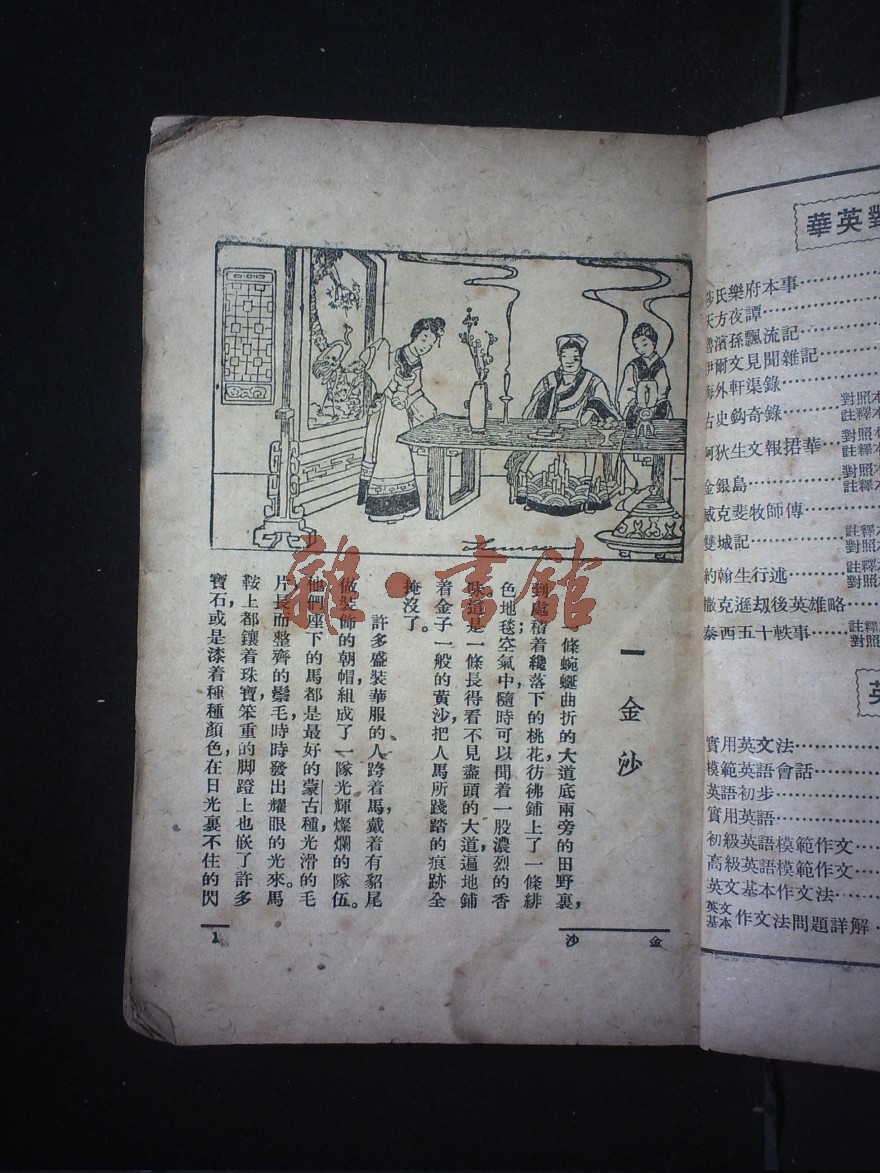 一 金沙
一條蜿蜒曲折的大道底兩旁的田野裏，
到處積着纔落下的桃花，彷彿鋪上了一條緋
色地毯；空氣中，隨時可以聞着一股濃烈的香
味道是一條長得看不見盡頭的大道，遍地鋪
着金子一般的黃沙，把人馬所踐踏的痕跡全
掩沒了。
許多盛裝華服的人跨着馬，戴着有貂尾
做裝飾的朝帽，組成了一隊光輝燦爛的隊伍。
他們座下的馬都是最好的蒙古種，光滑的毛
片，長而整齊的鬃毛，時時發出耀眼的光來。馬
鞍上都鑲着珠寶，笨重的脚蹬上也嵌了許多
寶石，或是漆着種種顏色，在日光裏不住的閃
金沙
1
雜·書館
華英對
氏樂府本事
天方夜譚
濱孫飄流記
伊爾文見聞雜記
海外軒渠錄
古史鈎奇錄 對照本 註釋本
阿狄生文報捃華 對照本 註釋本
金銀島 對照本 註釋本
威克斐牧師傳
雙城記 註釋本 對照本
約翰生行述 註釋本 對照本
撒克遜刼後英雄略
泰西五十軼事 註釋 對照
英
實用英文法
模範英語會話
英語初步
實用英語
初級英語模範作文
高級英語模範作文
英文基本作文法
英文基本作文法問題詳解